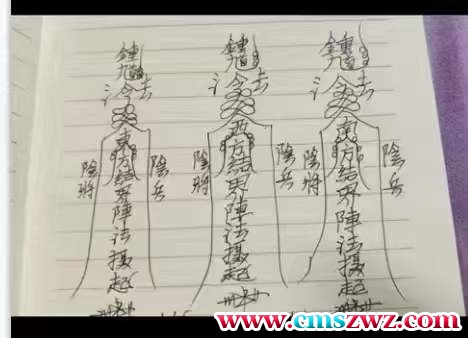 鍾馗
法令
東方結界陣法攝起
陰將
陰兵
鍾馗
法令
西方結界陣法攝起
陰將
陰兵
鍾馗
法令
南方結界陣法攝起
陰將
陰兵
www.cmszwz.com